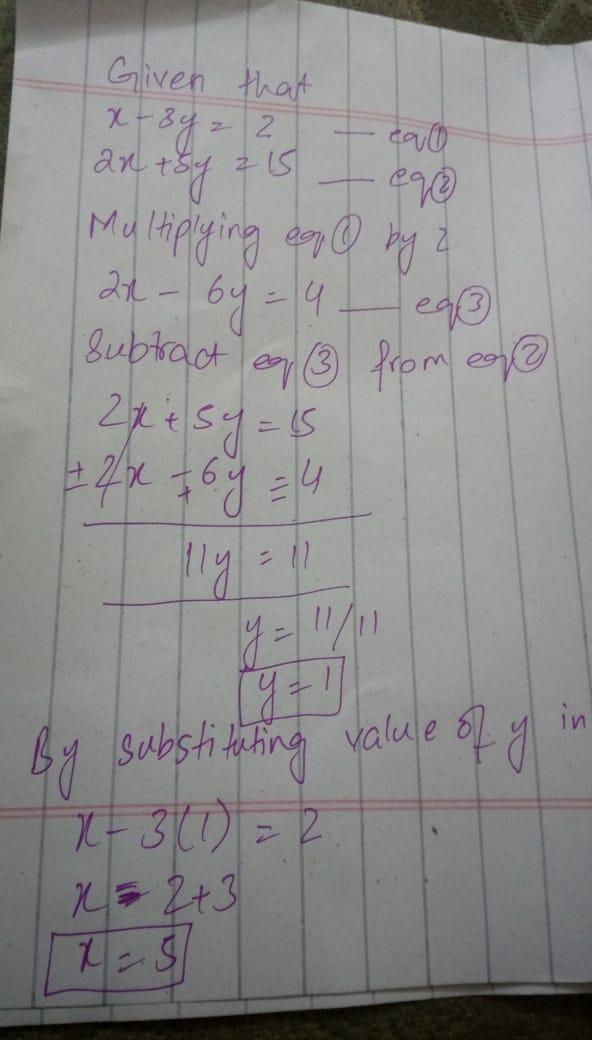 Given that
x - 3y = 2 — eq①
2x + 5y = 15 — eq②
Multiplying eq① by 2
2x - 6y = 4 — eq③
Subtract eq③ from eq②
2x + 5y = 15
±2x ∓ 6y = 4
11y = 11
y = 11/11
y = 1
By substituting value of y in
x - 3(1) = 2
x = 2+3
x = 5